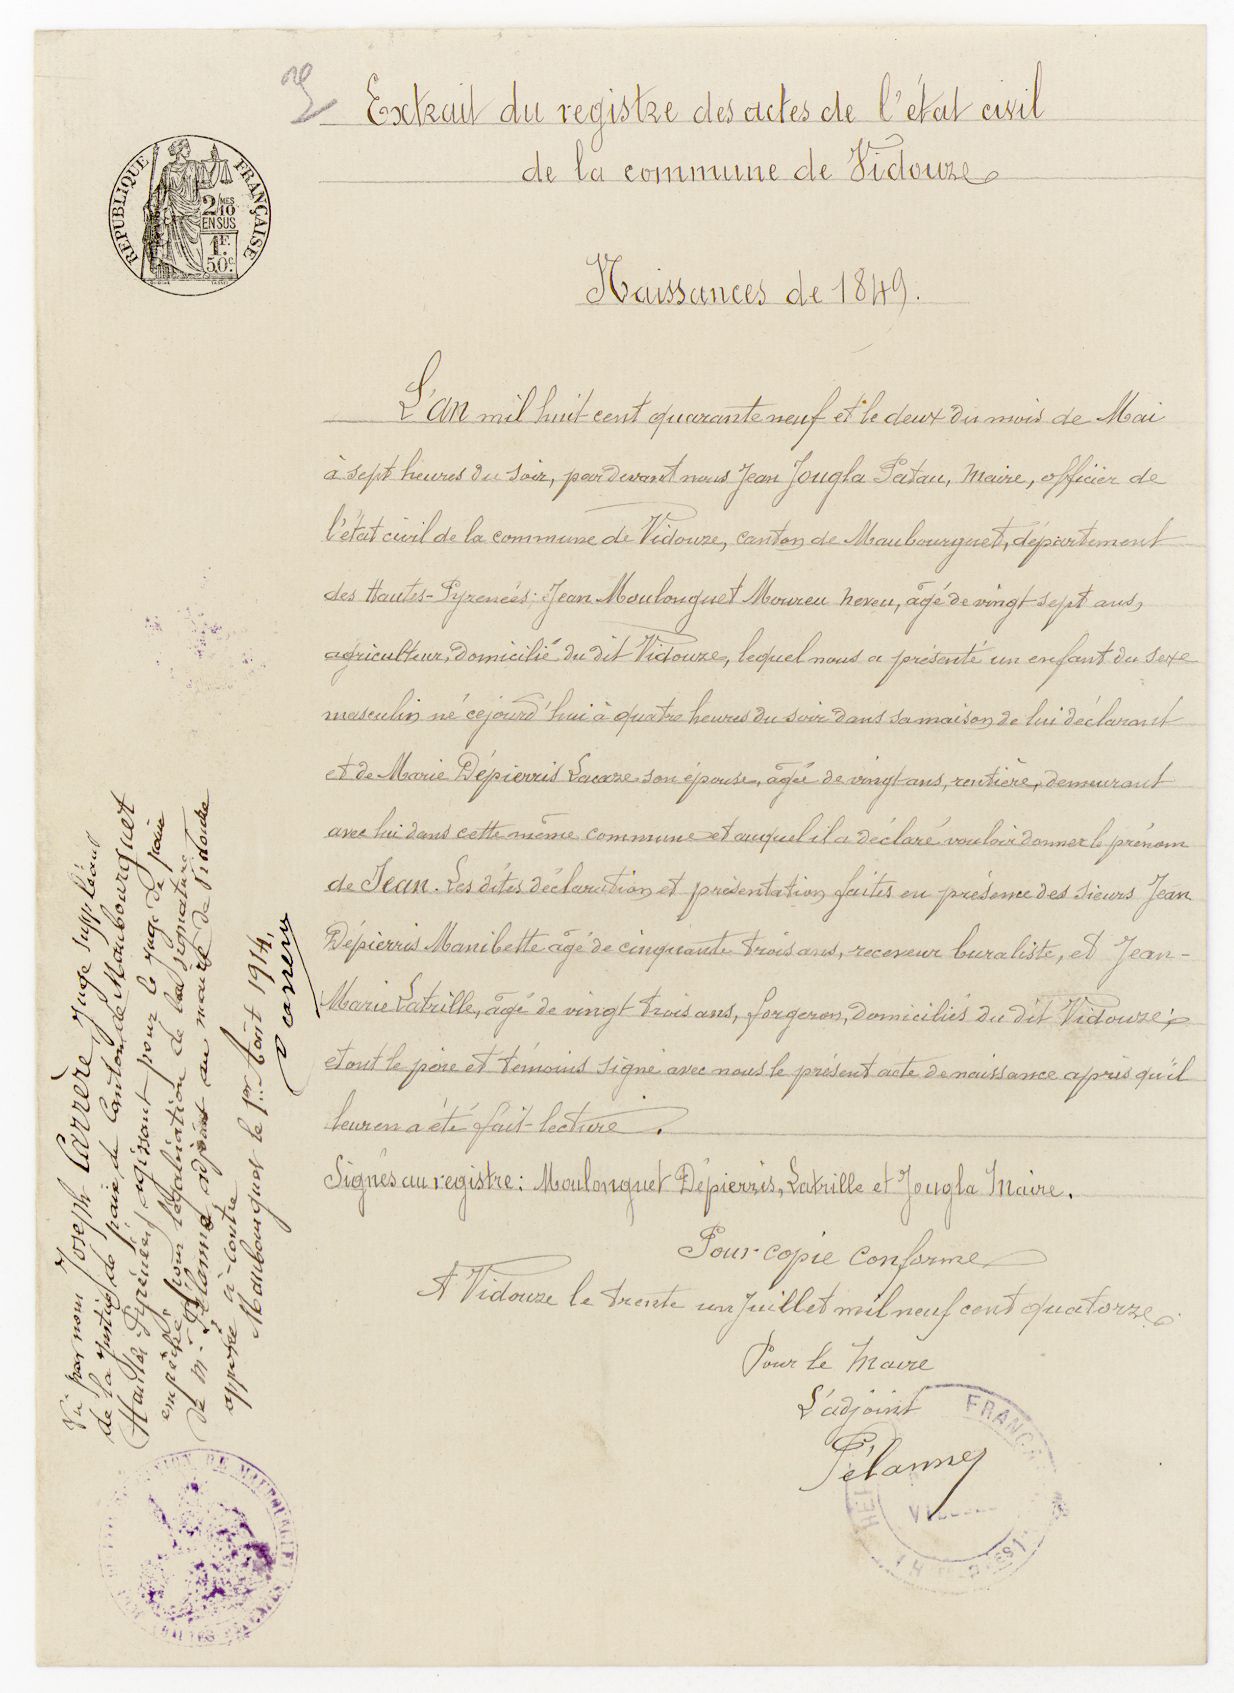 Extrait du registre des actes de l'état civil
de la commune de Vidouze
RÉPUBLIQUE FRANÇAISE
2/10 MES
EN SUS
1F.
50c
Naissances de 1849.
L'an mil huit cent quarante neuf et le deux du mois de Mai
à sept heures du soir, par devant nous Jean Jougla Patau, Maire, officier de
l'état civil de la commune de Vidouze, canton de Maubourguet, département
des Hautes-Pyrenées; Jean Moulonguet Moureu neveu, âgé de vingt sept ans,
agriculteur, domicilié du dit Vidouze, lequel nous a présenté un enfant du sexe
masculin né cejourd'hui à quatre heures du soir dans sa maison de lui déclarant
et de Marie Dépierris Lacaze son épouse, âgée de vingt ans, rentière, demeurant
avec lui dans cette même commune et auquel il a déclaré vouloir donner le prénom
de Jean. Les dites déclaration et présentation faites en présence des sieurs Jean
Dépierris Manibette âgé de cinquante trois ans, receveur buraliste, et Jean-
Marie Latrille, âgé de vingt trois ans, forgeron, domiciliés du dit Vidouze;
et ont le père et témoins signé avec nous le présent acte de naissance après qu'il
leur en a été fait lecture.
Signés au registre: Moulonguet Dépierris, Latrille et Jougla Maire.
Pour copie conforme
A Vidouze le trente un Juillet mil neuf cent quatorze.
Pour le Maire
L'adjoint
Pélanne
FRANÇ
Vu par nous Joseph Carrère, Juge suppléant
de la Justice de paix du Canton de Maubourguet
(Hautes Pyrénées) agissant pour le Juge de paix
empêché, pour légalisation de la signature
de M. Pélanne adjoint au maire de Vidouze
apposée ci-contre
Maubourguet le 1er Août 1914,
Carrère